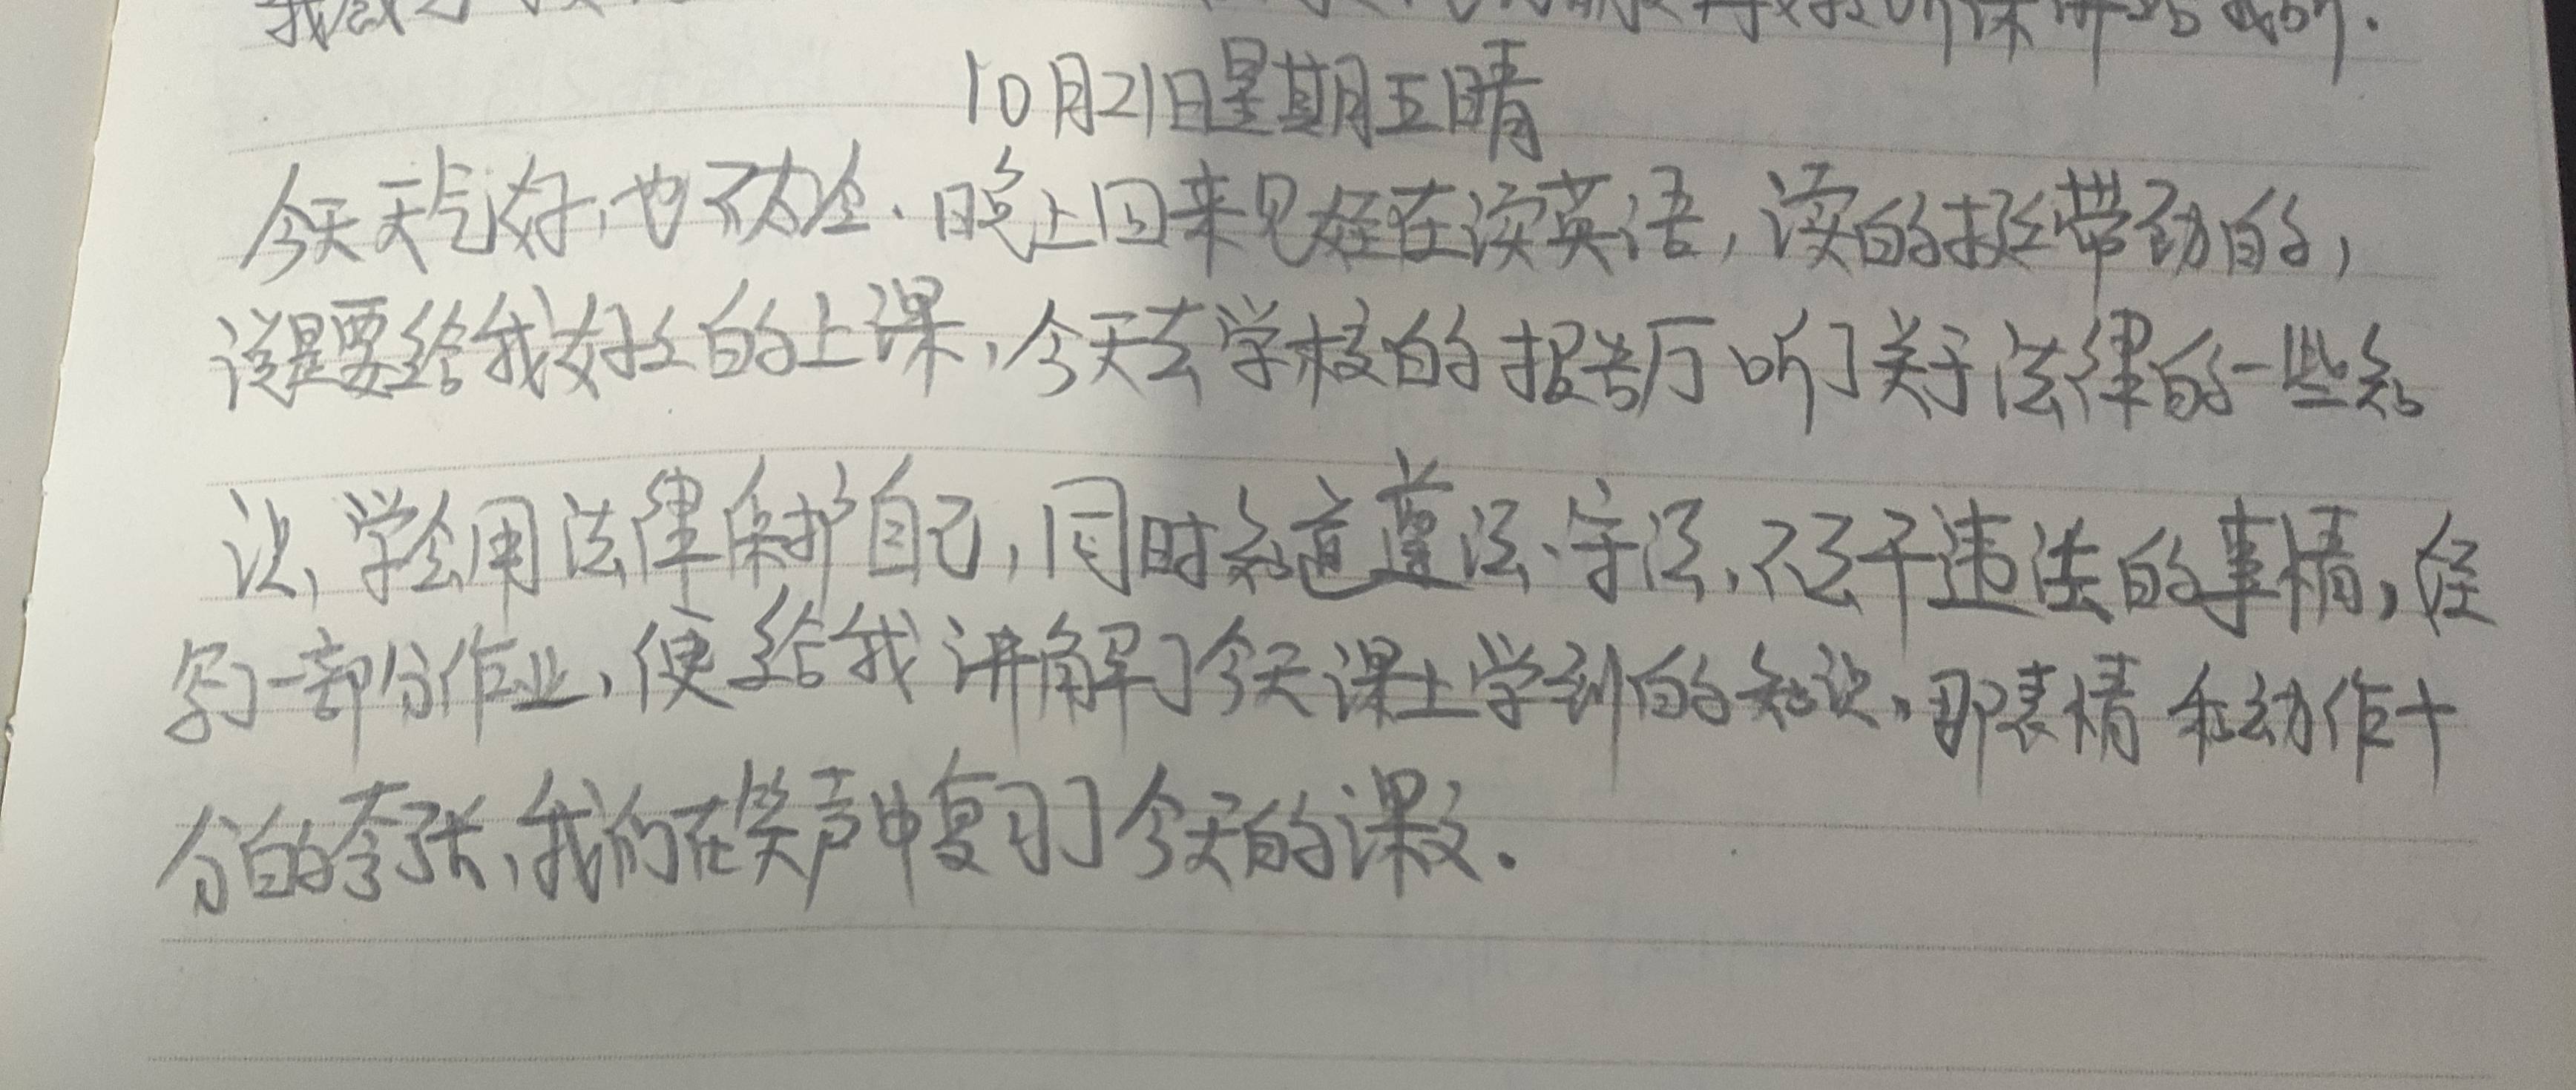 10月21日星期五晴
今天天气好,也不太冷.晚上回来见侄在读英语,读的挺带劲的,
说是要给我好好的上课,今天去学校的报告厅听了关于法律的一些知
识,学会用法律保护自己,同时知道遵法、守法,不去干违法的事情,侄
写了一部分作业,便给我讲解了今天课上学到的知识,那表情和动作十
分的夸张,我们在笑声中复习了今天的课文.